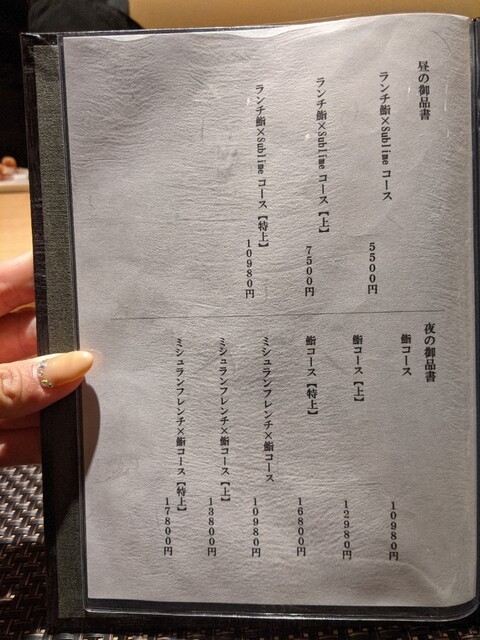 昼の御品書
ランチ鮨×Sublime コース
5500円
ランチ鮨×Sublime コース【上】
7500円
ランチ鮨×Sublime コース【特上】
10980円
夜の御品書
鮨コース
10980円
鮨コース【上】
12980円
鮨コース【特上】
16800円
ミシュランフレンチ×鮨コース
10980円
ミシュランフレンチ×鮨コース【上】
13800円
ミシュランフレンチ×鮨コース【特上】
17800円